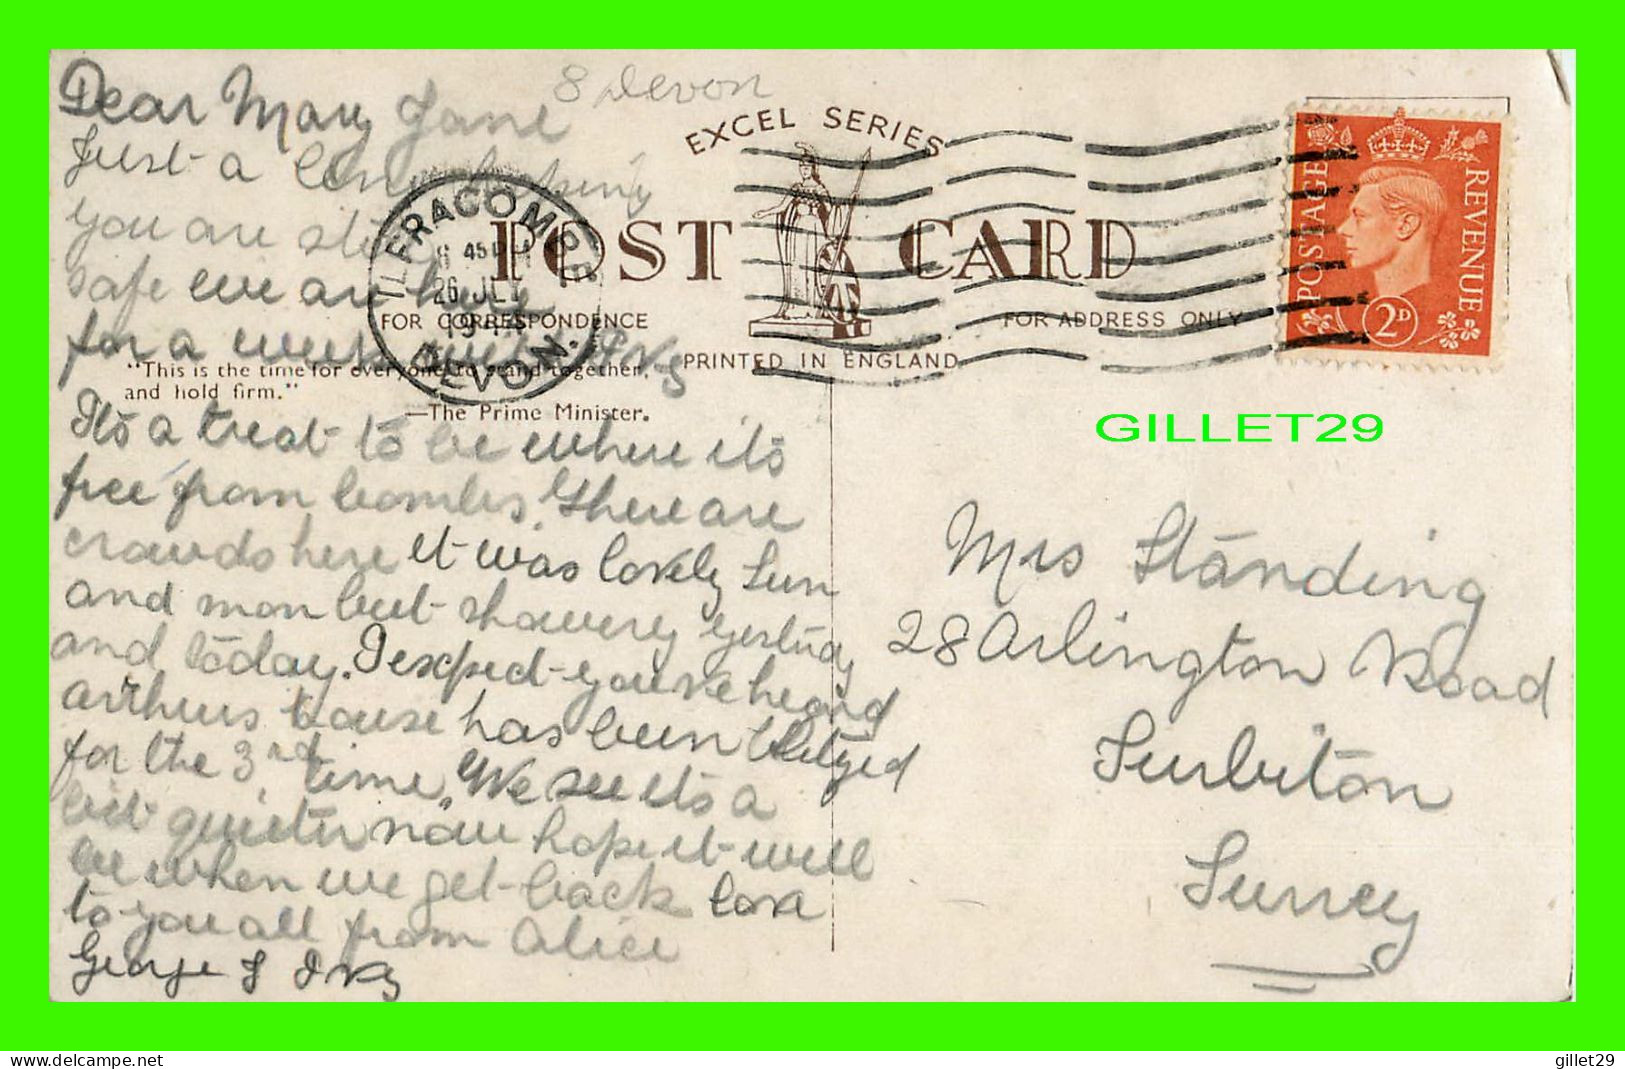 Dear Mary Jane
8 Devon
Just a line hoping
you are still
safe we are here
for a week with Ivy
It's a treat to be where it's
free from bombs. There are
crowds here it was lovely Sun
and mon but showery yesterday
and today. I expect you've heard
arthurs house has been blitzed
for the 3rd time. We see it's a
bit quieter now hope it will
be when we get back love
to you all from Alice
George & Ivy
EXCEL SERIES
POST CARD
FOR CORRESPONDENCE
FOR ADDRESS ONLY
PRINTED IN ENGLAND
"This is the time for everyone to stand together,
and hold firm."
—The Prime Minister.
ILFRACOMBE
45 PM
26 JLY
DEVON.
POSTAGE
REVENUE
2D
GILLET29
Mrs Standing
28 Arlington Road
Surbiton
Surrey
https://www.delcampe.net
gillet29